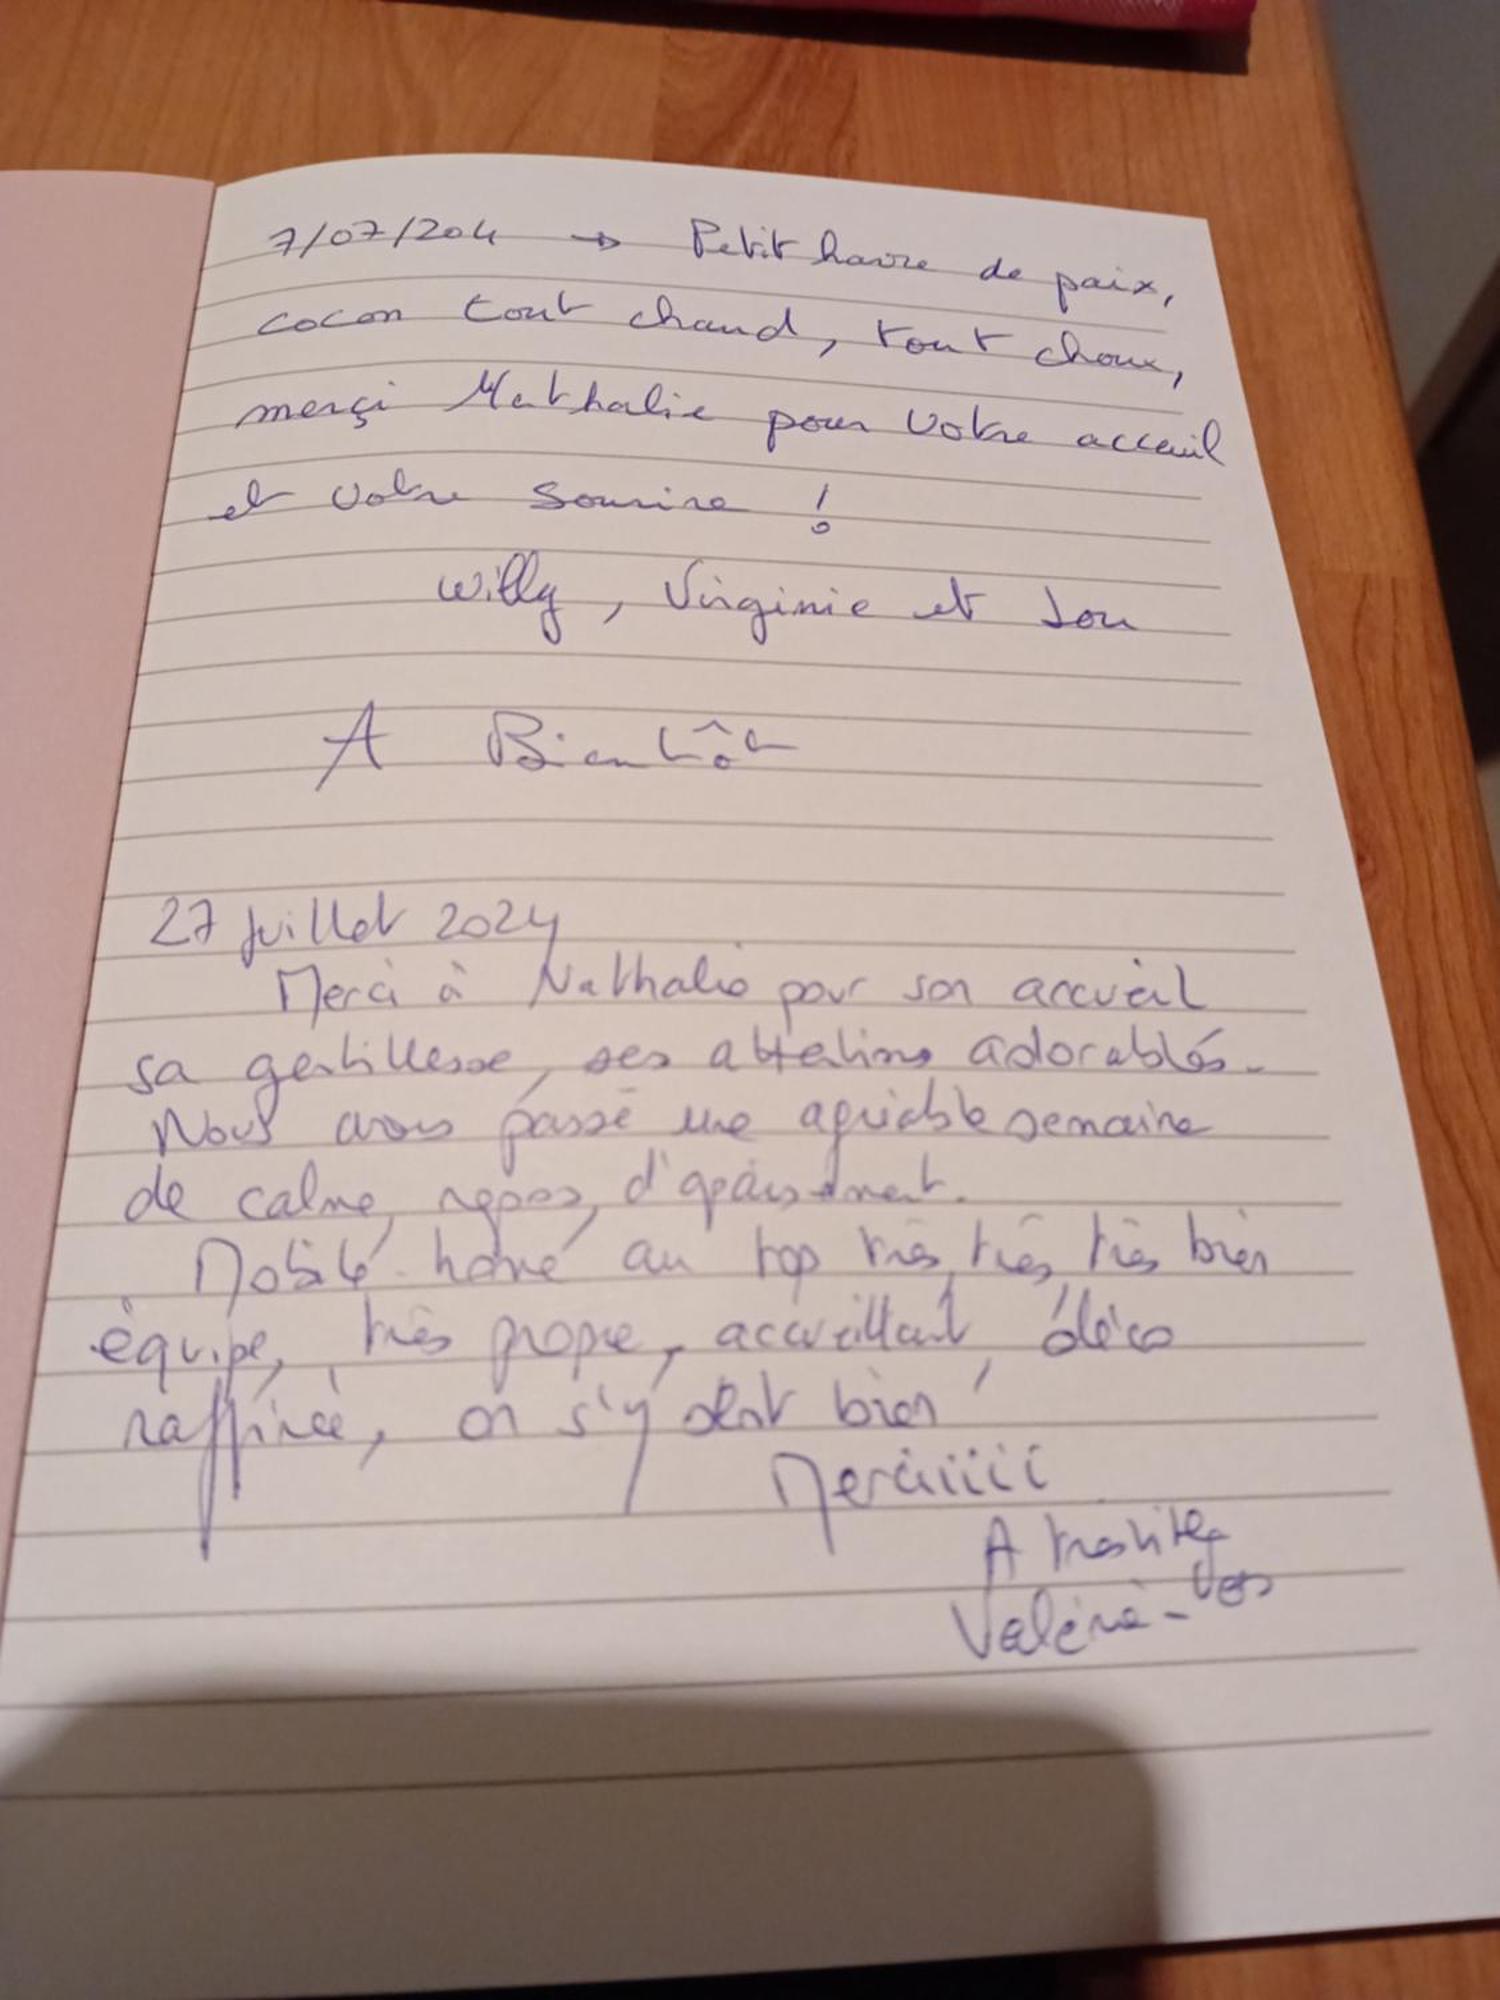 7/07/204 → Petit havre de paix,
cocon tout chaud, tout choux,
merçi Nathalie pour votre acceuil
et votre sourire !
Willy, Virginie et Lou
A Bientôt
27 Juillet 2024
Merci à Nathalie pour son accueil
sa gentillesse, ses attentions adorables.
Nous avons passé une agréable semaine
de calme, repos, d'apaisement.
Mobile home au top très, très, très bien
équipe, très propre, accueillant, déco
raffinée, on s'y sent bien
Merciiiii
A très vite
Valérie - Yes